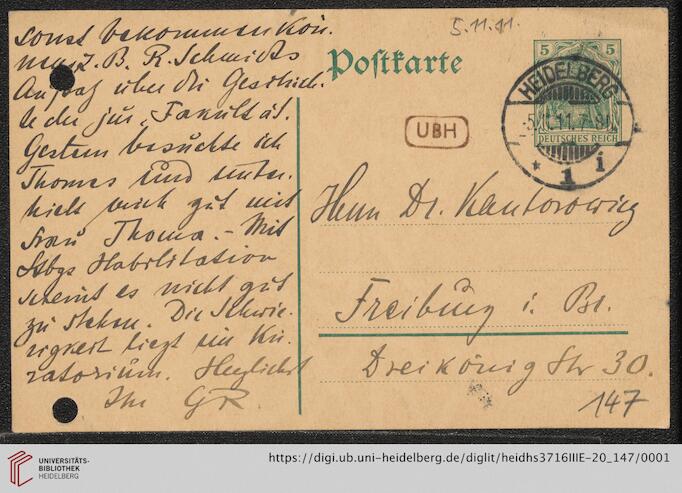 sonst bekommen kön.
nen, z. B. R. Schmidts
Aufsatz über die Geschich.
te der jur. Fakultät.
Gestern besuchte ich
Thomas und unter.
hielt mich gut mit
Frau Thoma. - Mit
Stbgs Habilitation
scheint es nicht gut
zu stehen. Die Schwie.
rigkeit liegt im Ku.
ratorium. Herzlichst
Ihr GR.
5.11.11.
Postkarte
5 5
DEUTSCHES REICH
HEIDELBERG
-5.11.11.7-8N.
* 1 i
UBH
Herrn Dr. Kantorowicz
Freiburg i. Br.
Dreikönig Str 30.
147
UNIVERSITÄTS-
BIBLIOTHEK
HEIDELBERG
https://digi.ub.uni-heidelberg.de/diglit/heidhs3716IIIE-20_147/0001